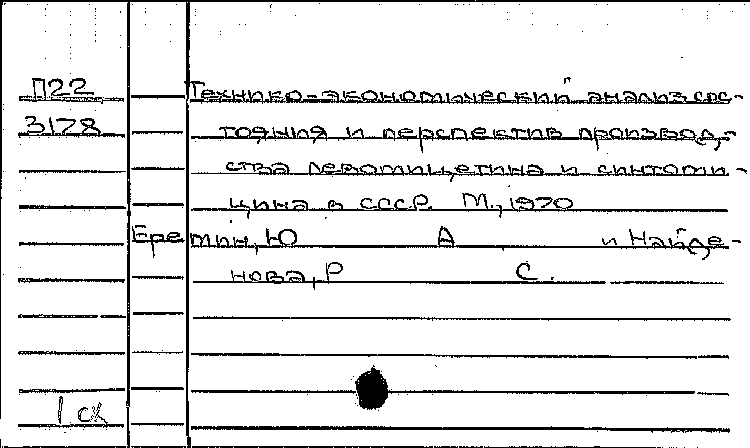 П22 Технико-экономический анализ сос-
3178 тояния и перспектив производ-
ства левомицетина и синтоми-
цина в СССР. М., 1970
Еремин, Ю А и Найде-
нова, Р С.
1 ск